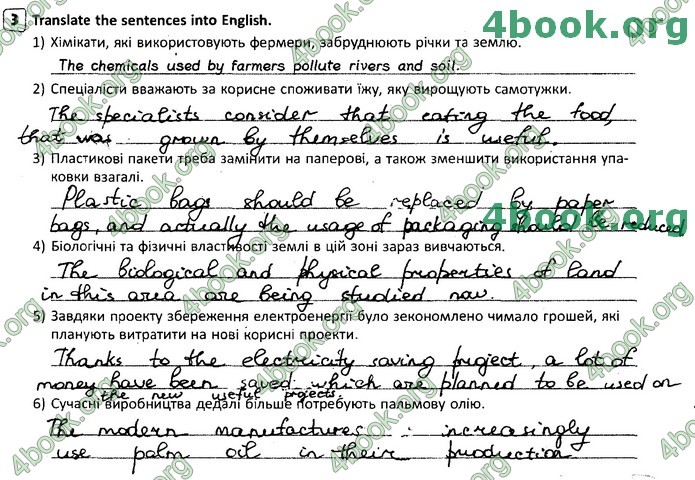 3 Translate the sentences into English.
4book.org
1) Хімікати, які використовують фермери, забруднюють річки та землю.
The chemicals used by farmers pollute rivers and soil.
2) Спеціалісти вважають за корисне споживати їжу, яку вирощують самотужки.
The specialists consider that eating the food,
that was grown by themselves is useful.
3) Пластикові пакети треба замінити на паперові, а також зменшити використання упа-
ковки взагалі.
Plastic bags should be replaced by paper
bags, and actually the usage of packaging should be reduced
4book.org
4) Біологічні та фізичні властивості землі в цій зоні зараз вивчаються.
The biological and physical properties of land
in this area are being studied now.
5) Завдяки проекту збереження електроенергії було зекономлено чимало грошей, які
планують витратити на нові корисні проекти.
Thanks to the electricity saving project, a lot of
money have been saved which are planned to be used on
the new useful projects.
6) Сучасні виробництва дедалі більше потребують пальмову олію.
The modern manufactures increasingly
use palm oil in their production